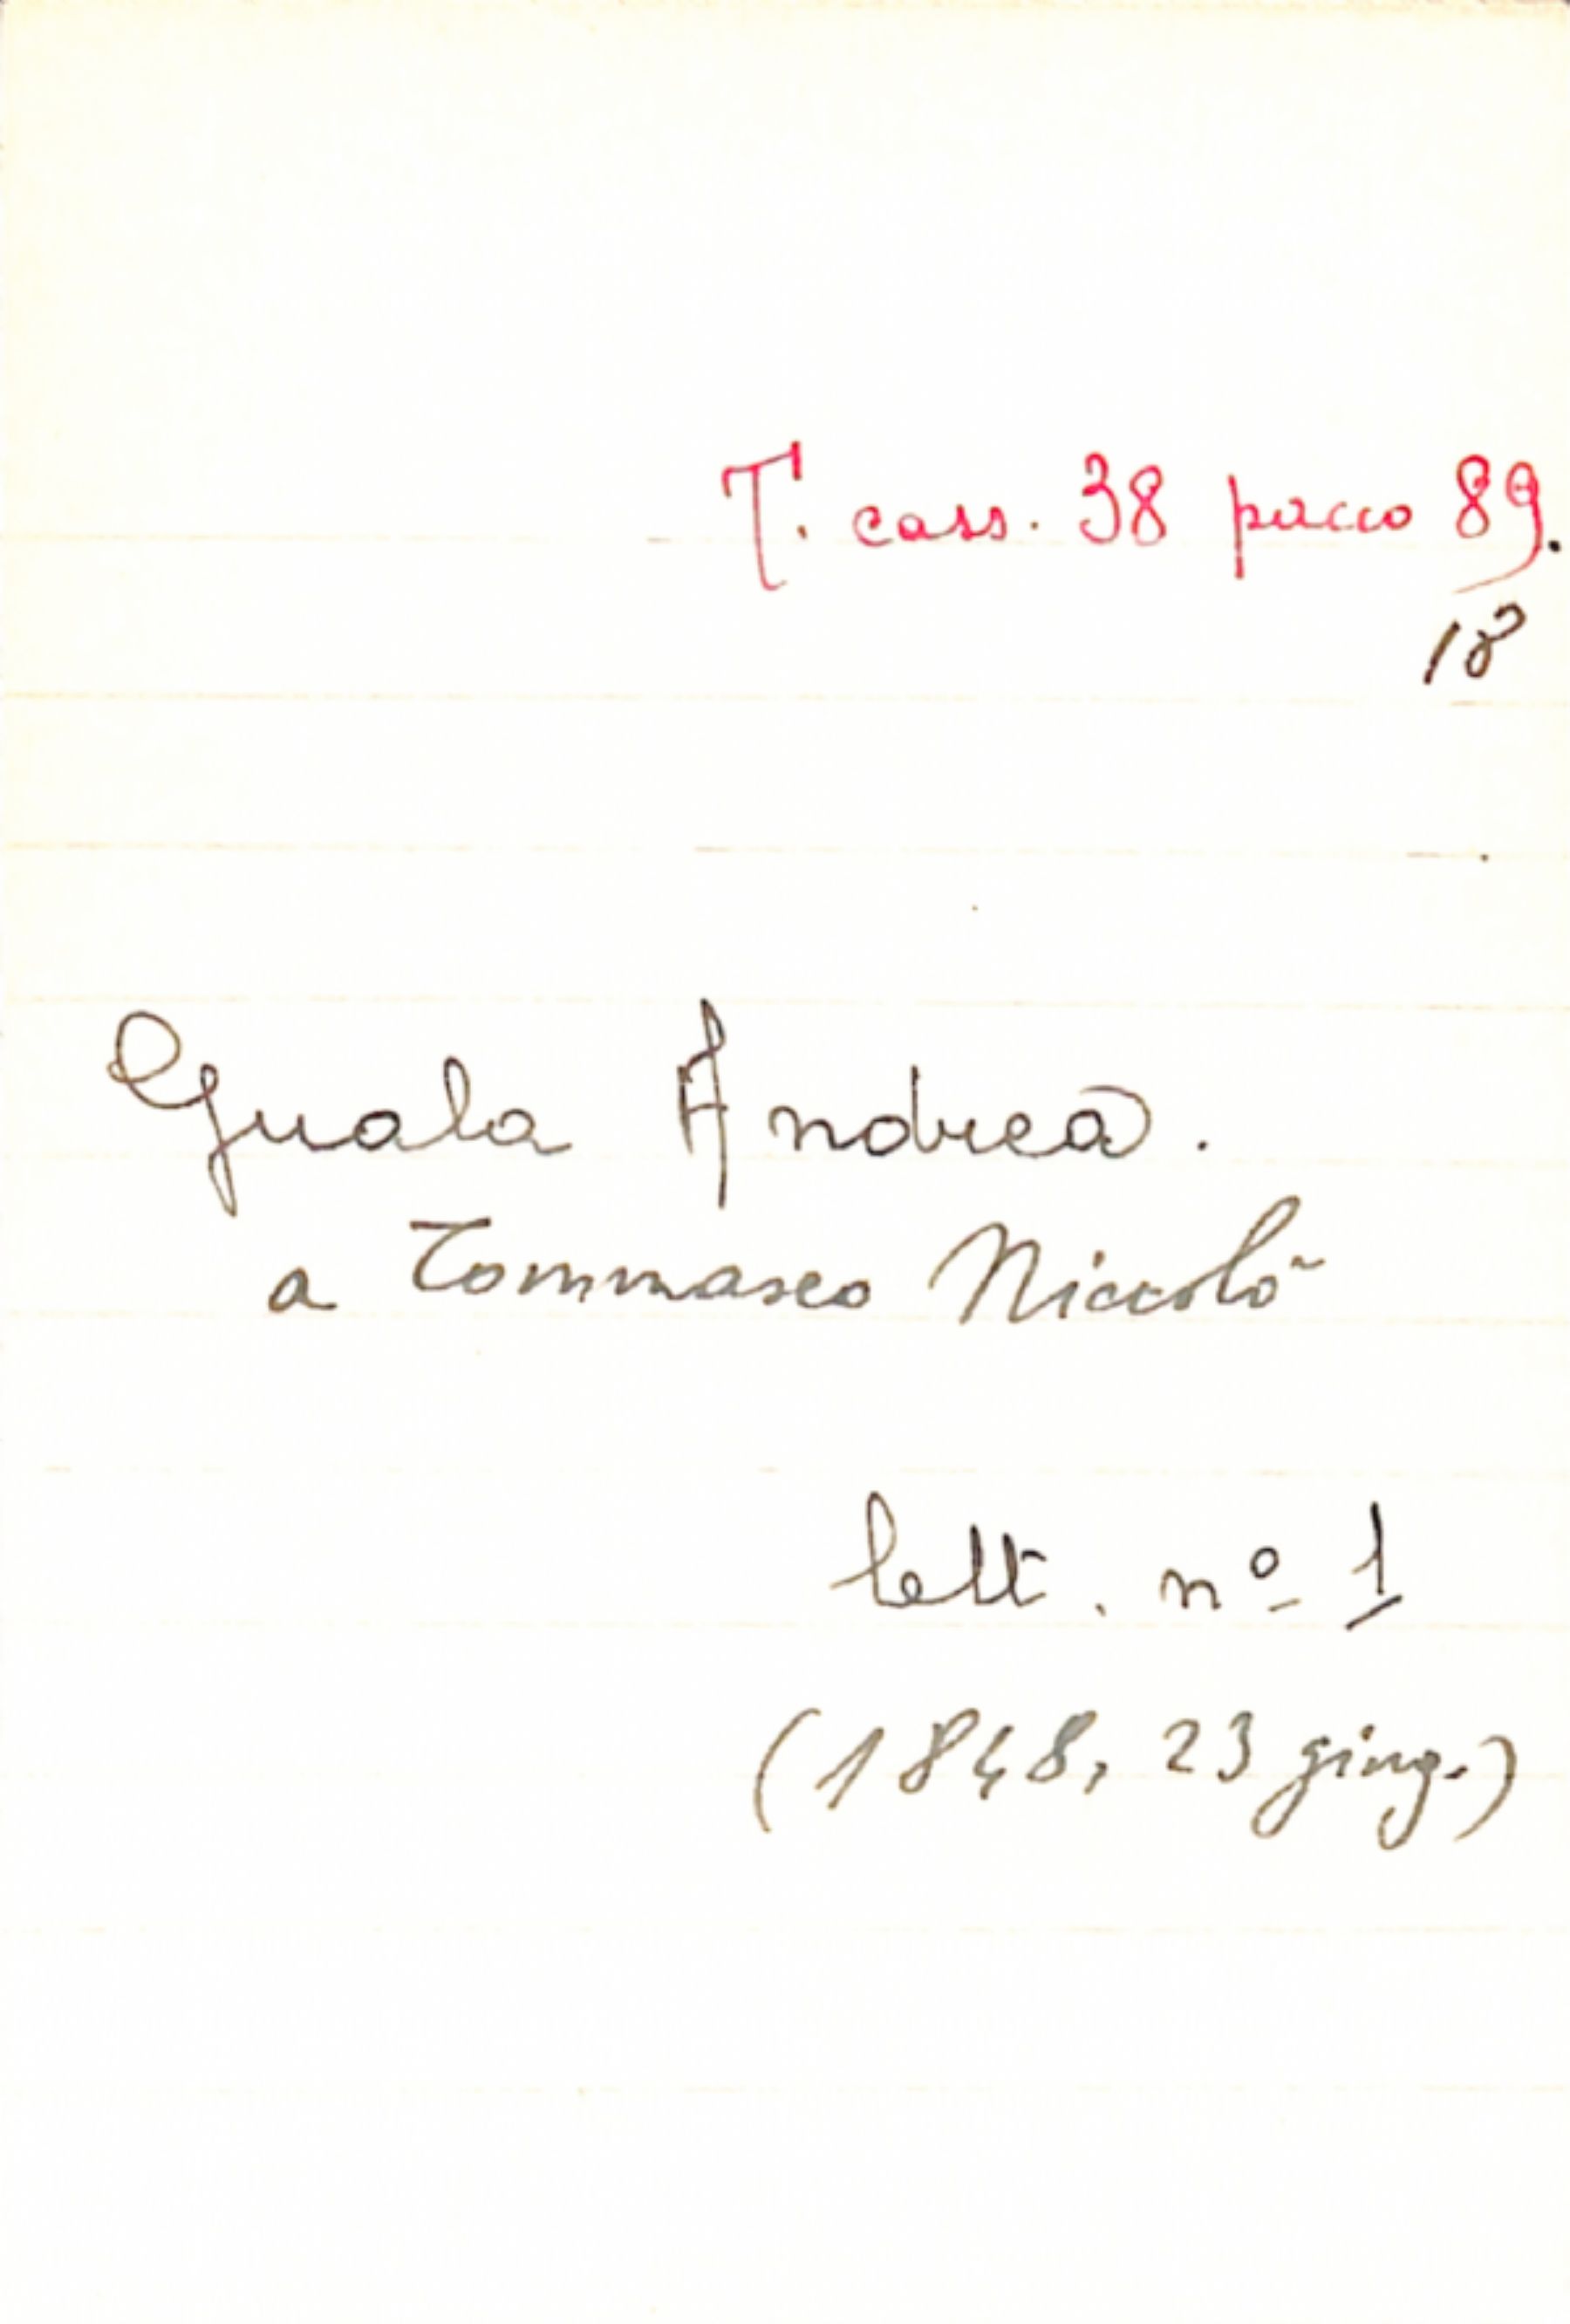 T. cass. 38 pacco 89.
18
Guala Andrea.
a Tommaseo Niccolò
lett. nº 1
(1848, 23 giug.)